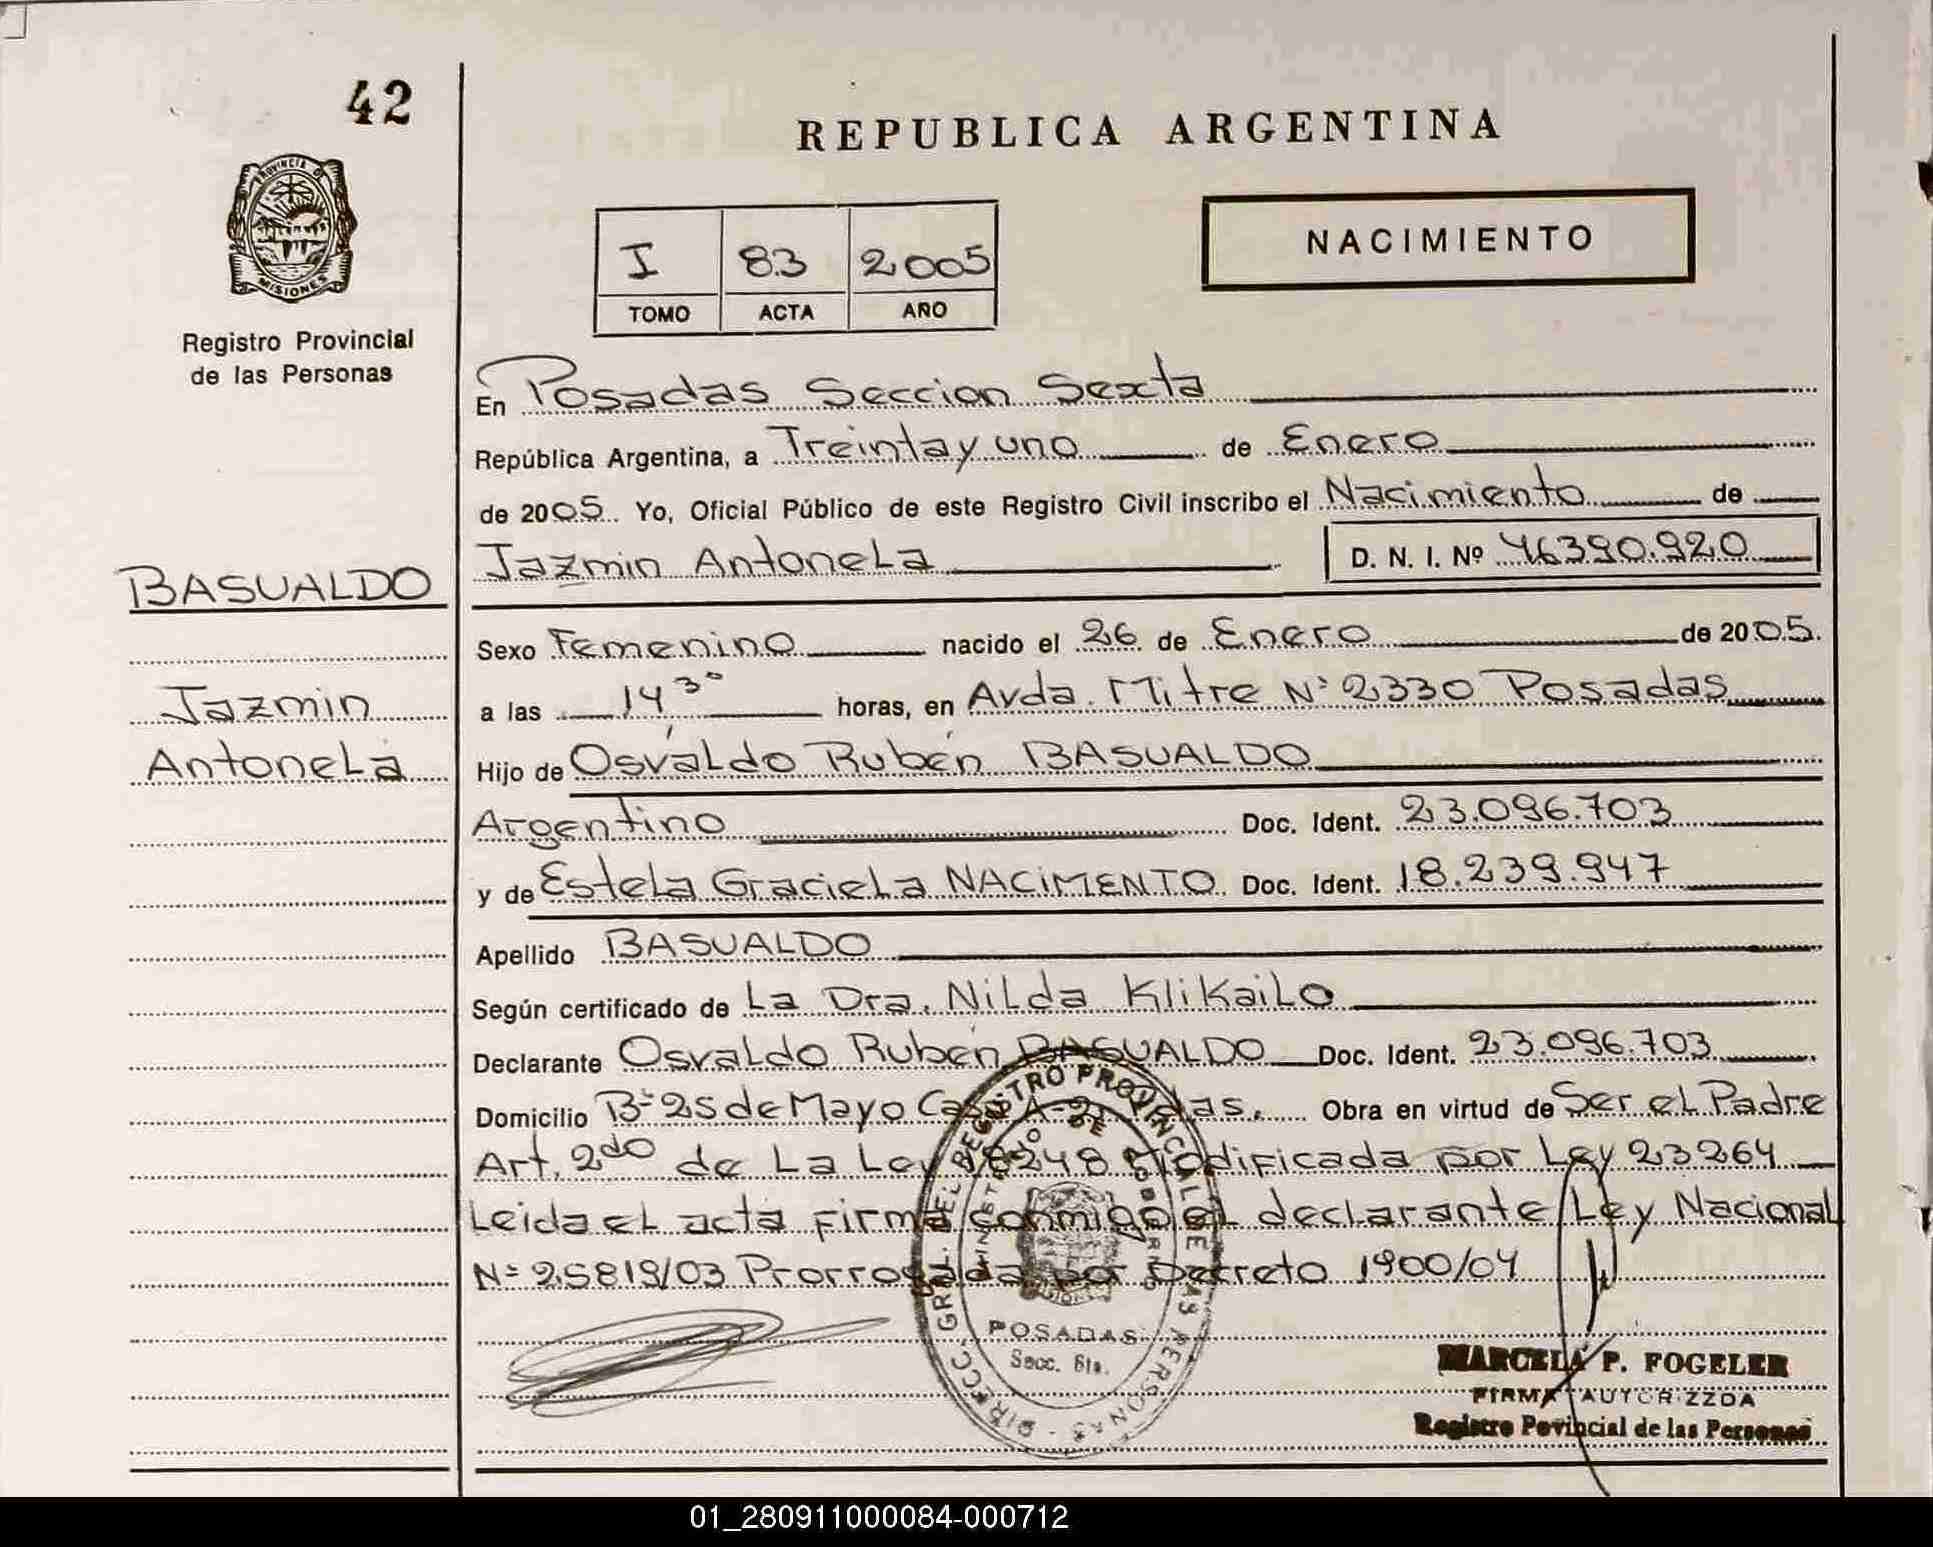 42
REPUBLICA ARGENTINA
PROVINCIA DE
MISIONES
Registro Provincial
de las Personas
I 83 2005
TOMO ACTA AÑO
NACIMIENTO
En Posadas Seccion Sexta
República Argentina, a Treinta y uno de Enero
de 2005. Yo, Oficial Público de este Registro Civil inscribo el Nacimiento de
Jazmin Antonela D. N. I. Nº 46390.920
BASUALDO
Sexo Femenino nacido el 26 de Enero de 2005.
Jazmin
Antonela
a las 14 30 horas, en Avda. Mitre Nº 2330 Posadas
Hijo de Osvaldo Rubén BASUALDO
Argentino Doc. Ident. 23.096.703
y de Estela Graciela NACIMENTO Doc. Ident. 18.239.947
Apellido BASUALDO
Según certificado de La Dra. Nilda Klikailo
Declarante Osvaldo Rubén BASUALDO Doc. Ident. 23.096.703
Domicilio Bº 25 de Mayo Casa A-2 Obra en virtud de Ser el Padre
Art. 2do de La Ley 18248 Modificada por Ley 23264
Leida el acta firma conmigo el declarante Ley Nacional
Nº 25819/03 Prorrogada por Decreto 1900/04
DIRECC. GRAL. DEL REGISTRO PROVINCIAL DE LAS PERSONAS
MINISTERIO DE GOBIERNO
POSADAS
Secc. 6ta.
MARCELA P. FOGELER
FIRMA AUTORIZZDA
Registro Povincial de las Personas
01_280911000084-000712